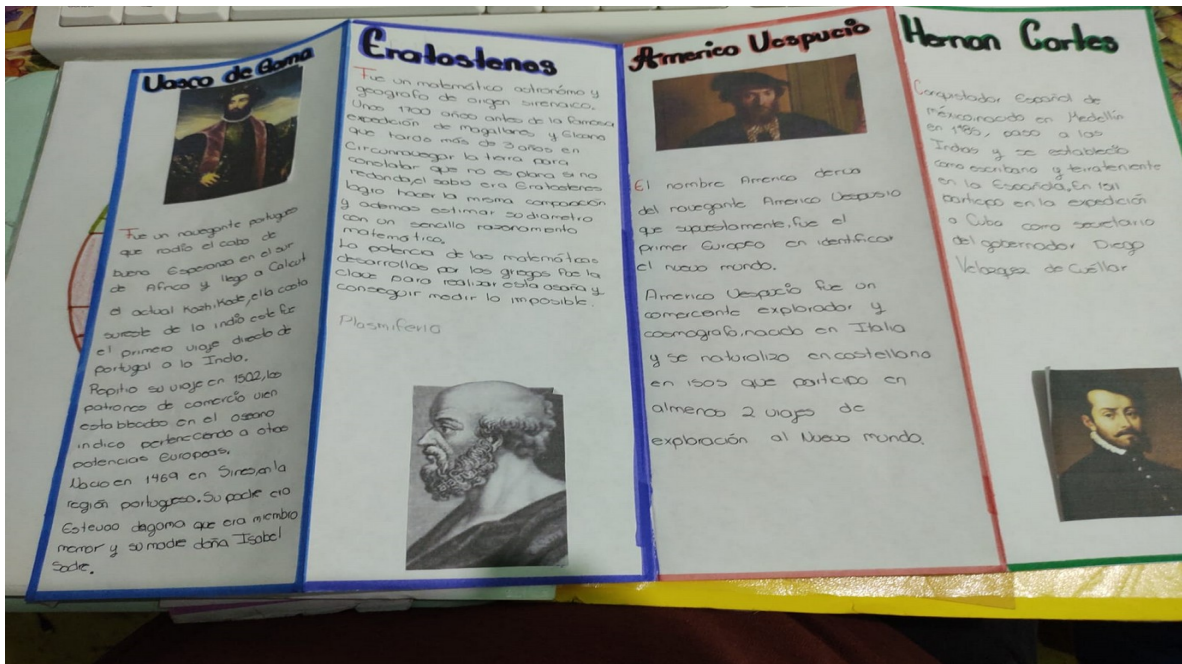 Vasco de Gama
Fue un navegante portugues
que rodío el cabo de
buena Esperanza en el sur
de Africa y llego a Calcut
el actual Kozhikode, el la costa
sureste de la india este fue
el primero viaje directo de
portugal a la India.
Repitio su viaje en 1502, los
patrones de comercio vien
establecidos en el oseano
indico pertenecendo a otras
potencias Europeas.
Nacio en 1469 en Sines, en la
región portuguesa. Su padre era
Estevao dagama que era miembro
memor y su madre doña Isabel
Sodre.
Eratostenes
Fue un matemático astronómo y
geografo de origen sirenaico.
Unos 1700 años antes de la famosa
expedición de Magallanes y Elcano
que tardo más de 3 años en
Circunnavegar la tierra para
constatar que no es plana si no
redonda, el sabio era Eratostenes
logro hacer la misma comparación
y ademas estimar su diametro
con un sencillo razonamiento
matemático.
La potencia de las matemáticas
desarrollas por los griegos fue la
clave para realizar esta asaña y
conseguir medir lo imposible.
Plasmiferia
Americo Vespucio
El nombre America deriva
del navegante Americo Vespusio
que supuestamente, fue el
primer Europeo en identificar
el nuevo mundo.
Americo Vespucio fue un
comerciante explorador y
cosmografo, nacido en Italia
y se naturalizo en castellano
en 1505 que participo en
almenos 2 viajes de
exploración al Nuevo mundo.
Hernan Cortes
Conquistador Español de
méxico, nacido en Medellín
en 1485, paso a las
Indias y se estableció
como escribano y terrateniente
en la Española, En 1511
participo en la expedición
a Cuba como secretario
del gobernador Diego
Velazquez de Cuéllar